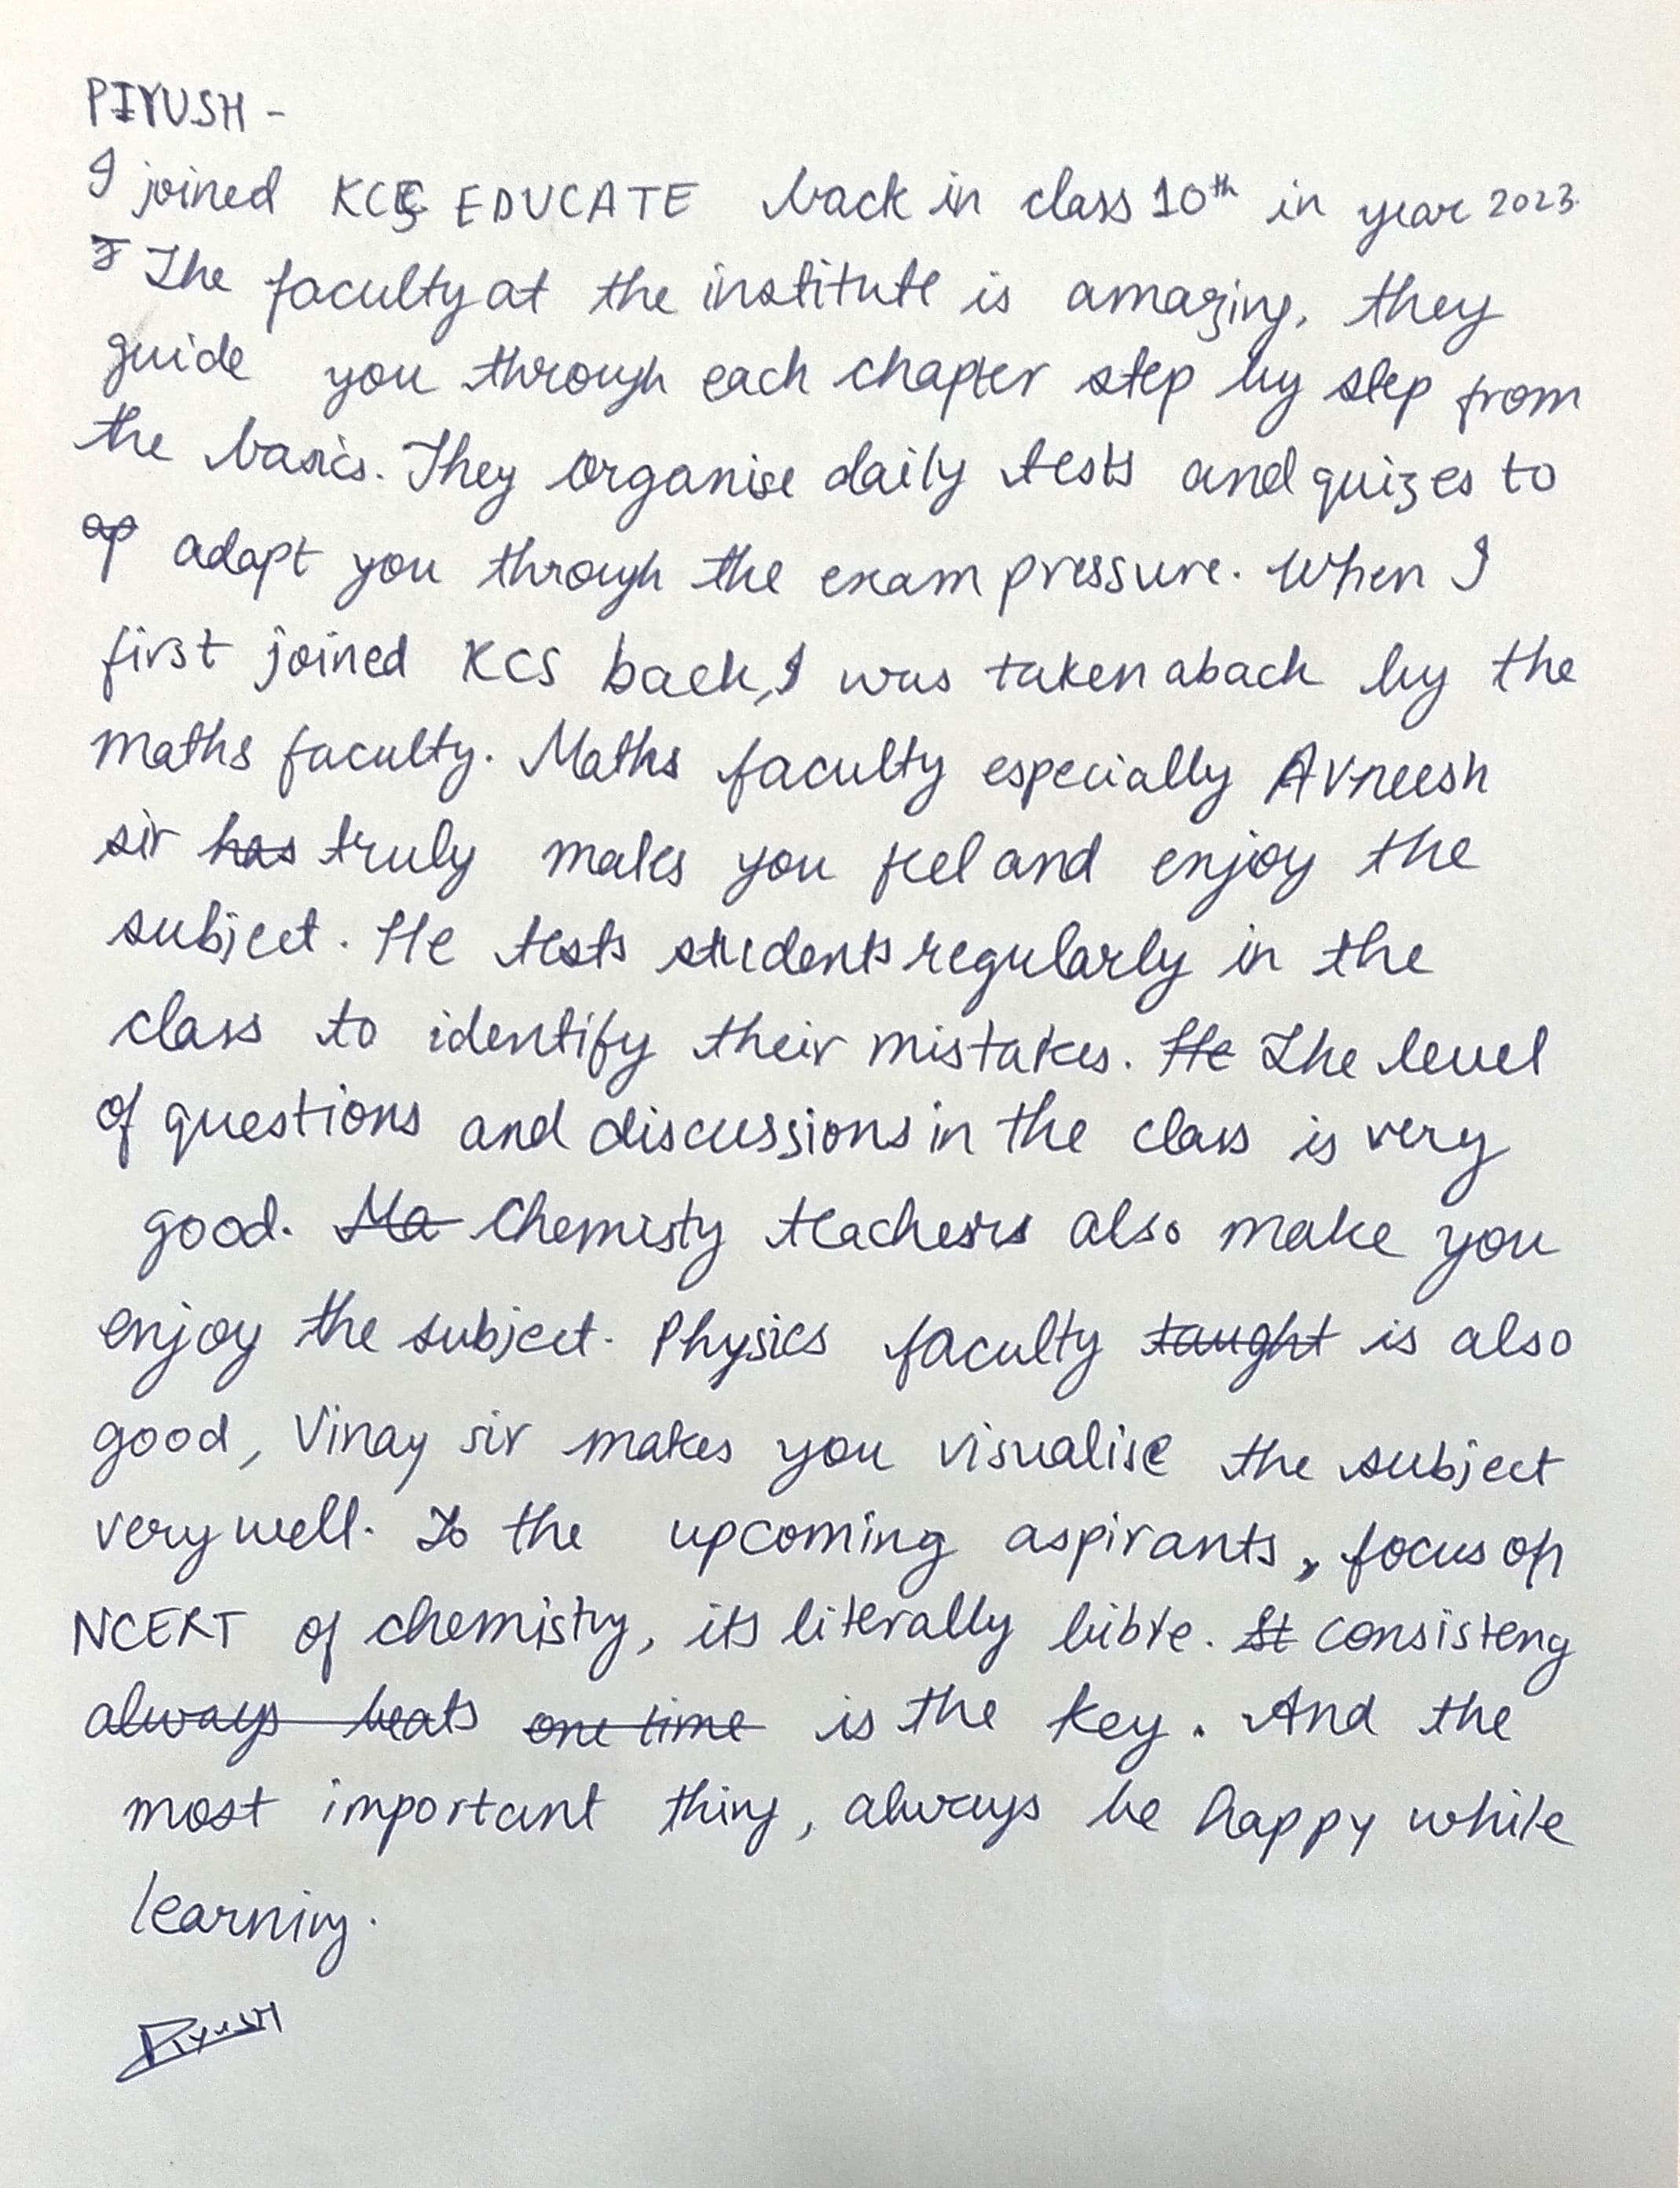 PIYUSH -
I joined KCS EDUCATE back in class 10th in year 2023.
The faculty at the institute is amazing, they
guide you through each chapter step by step from
the basics. They organise daily tests and quizes to
adapt you through the exam pressure. When I
first joined KCS back, I was taken aback by the
maths faculty. Maths faculty especially Avneesh
sir has truly makes you feel and enjoy the
subject. He tests students regularly in the
class to identify their mistakes. He The level
of questions and discussions in the class is very
good. Ma Chemisty teachers also make you
enjoy the subject. Physics faculty taught is also
good, Vinay sir makes you visualise the subject
very well. To the upcoming aspirants, focus on
NCERT of chemistry, its literally bible. St consisteny
always beats one time is the key. And the
most important thing, always be happy while
learning.
PIYUSH